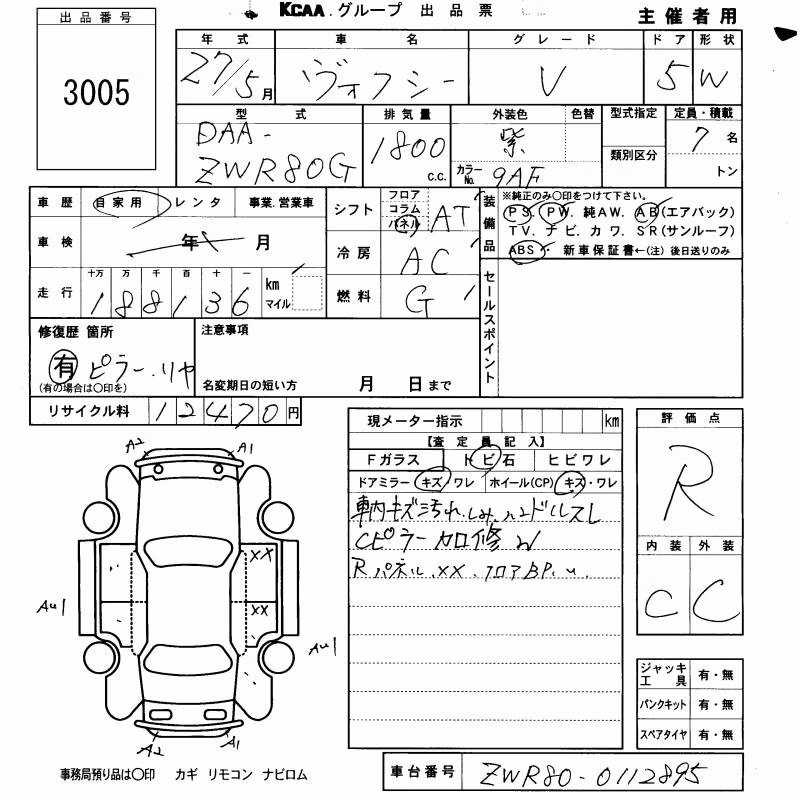 KCAA.グループ 出品票
主催者用
出品番号
3005
年式 車名 グレード ドア 形状
27/5月 ヴォクシー V 5 W
型式 排気量 外装色 色替 型式指定 定員・積載
DAA-
ZWR80G 1800 c.c. 紫 類別区分 7名
カラーNo. 9AF トン
車歴 自家用 レンタ 事業.営業車
車検 年 月
走行 十万 万 千 百 十 一
188136 km マイル
シフト フロア コラム パネル AT
冷房 AC
燃料 G
装備品 ※純正のみ○印をつけて下さい。
PS. PW. 純AW. AB(エアバック)
TV. ナビ. カワ. SR(サンルーフ)
ABS・ 新車保証書←(注)後日送りのみ
セールスポイント
修復歴 箇所
有 ピラー.リヤ
(有の場合は○印を)
注意事項
名変期日の短い方 月 日まで
リサイクル料 12470円
現メーター指示 km
【査定員記入】
Fガラス トビ石 ヒビワレ
ドアミラー キズ・ワレ ホイール(CP) キズ・ワレ
車内キズ汚れ.しみ.ハンドルスレ
Cピラー加修W
Rパネル.XX.フロアBP.u.
評価点
R
内装 外装
C C
A2 A1
XX
XX
Au1
Au1
A2 A1
ジャッキ工具 有・無
パンクキット 有・無
スペアタイヤ 有・無
事務局預り品は○印 カギ リモコン ナビロム
車台番号 ZWR80-0112895